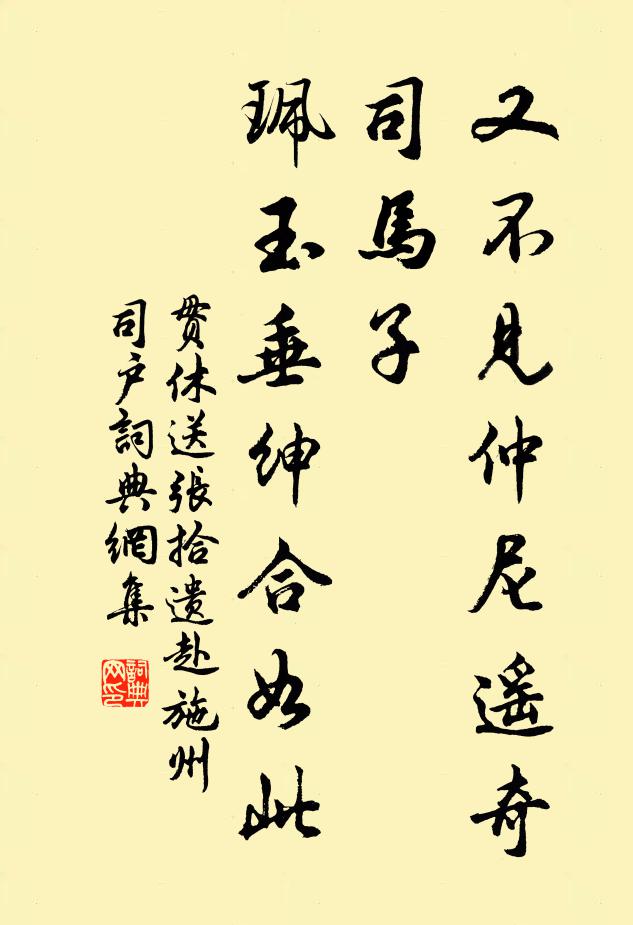 又不見仲尼遥奇
司馬子
珮玉垂紳合如此
貫休送張拾遗赴施州
司户詞典網集
詞典网印